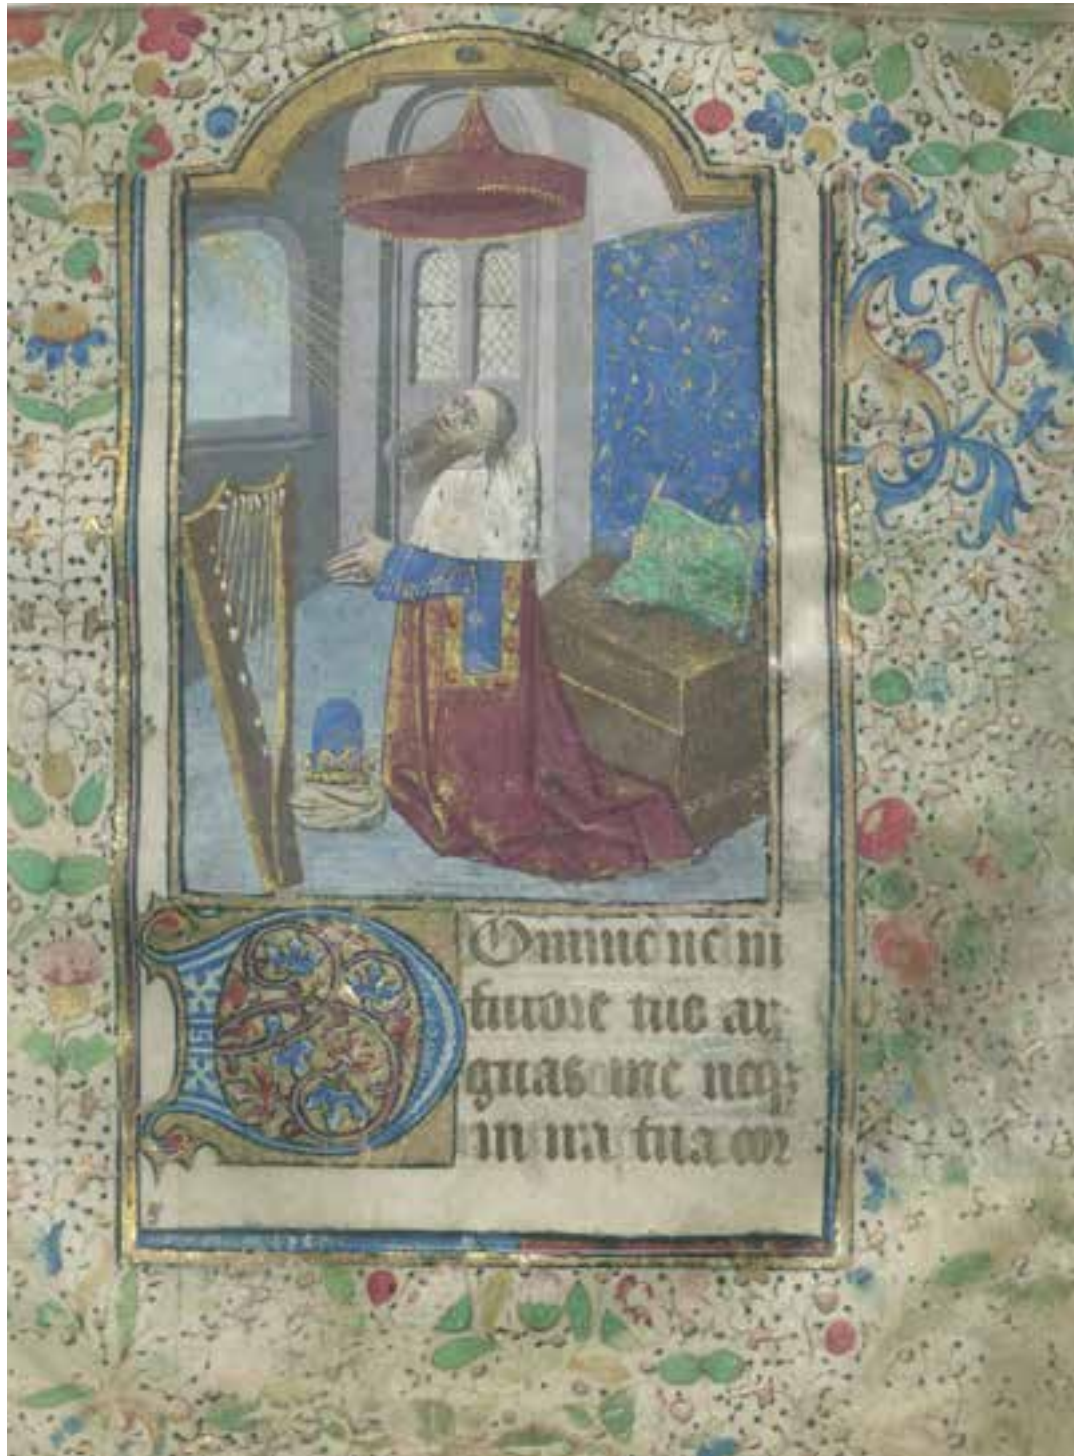 Domine ne in
furore tuo ar
guas me neq;
in ira tua cor